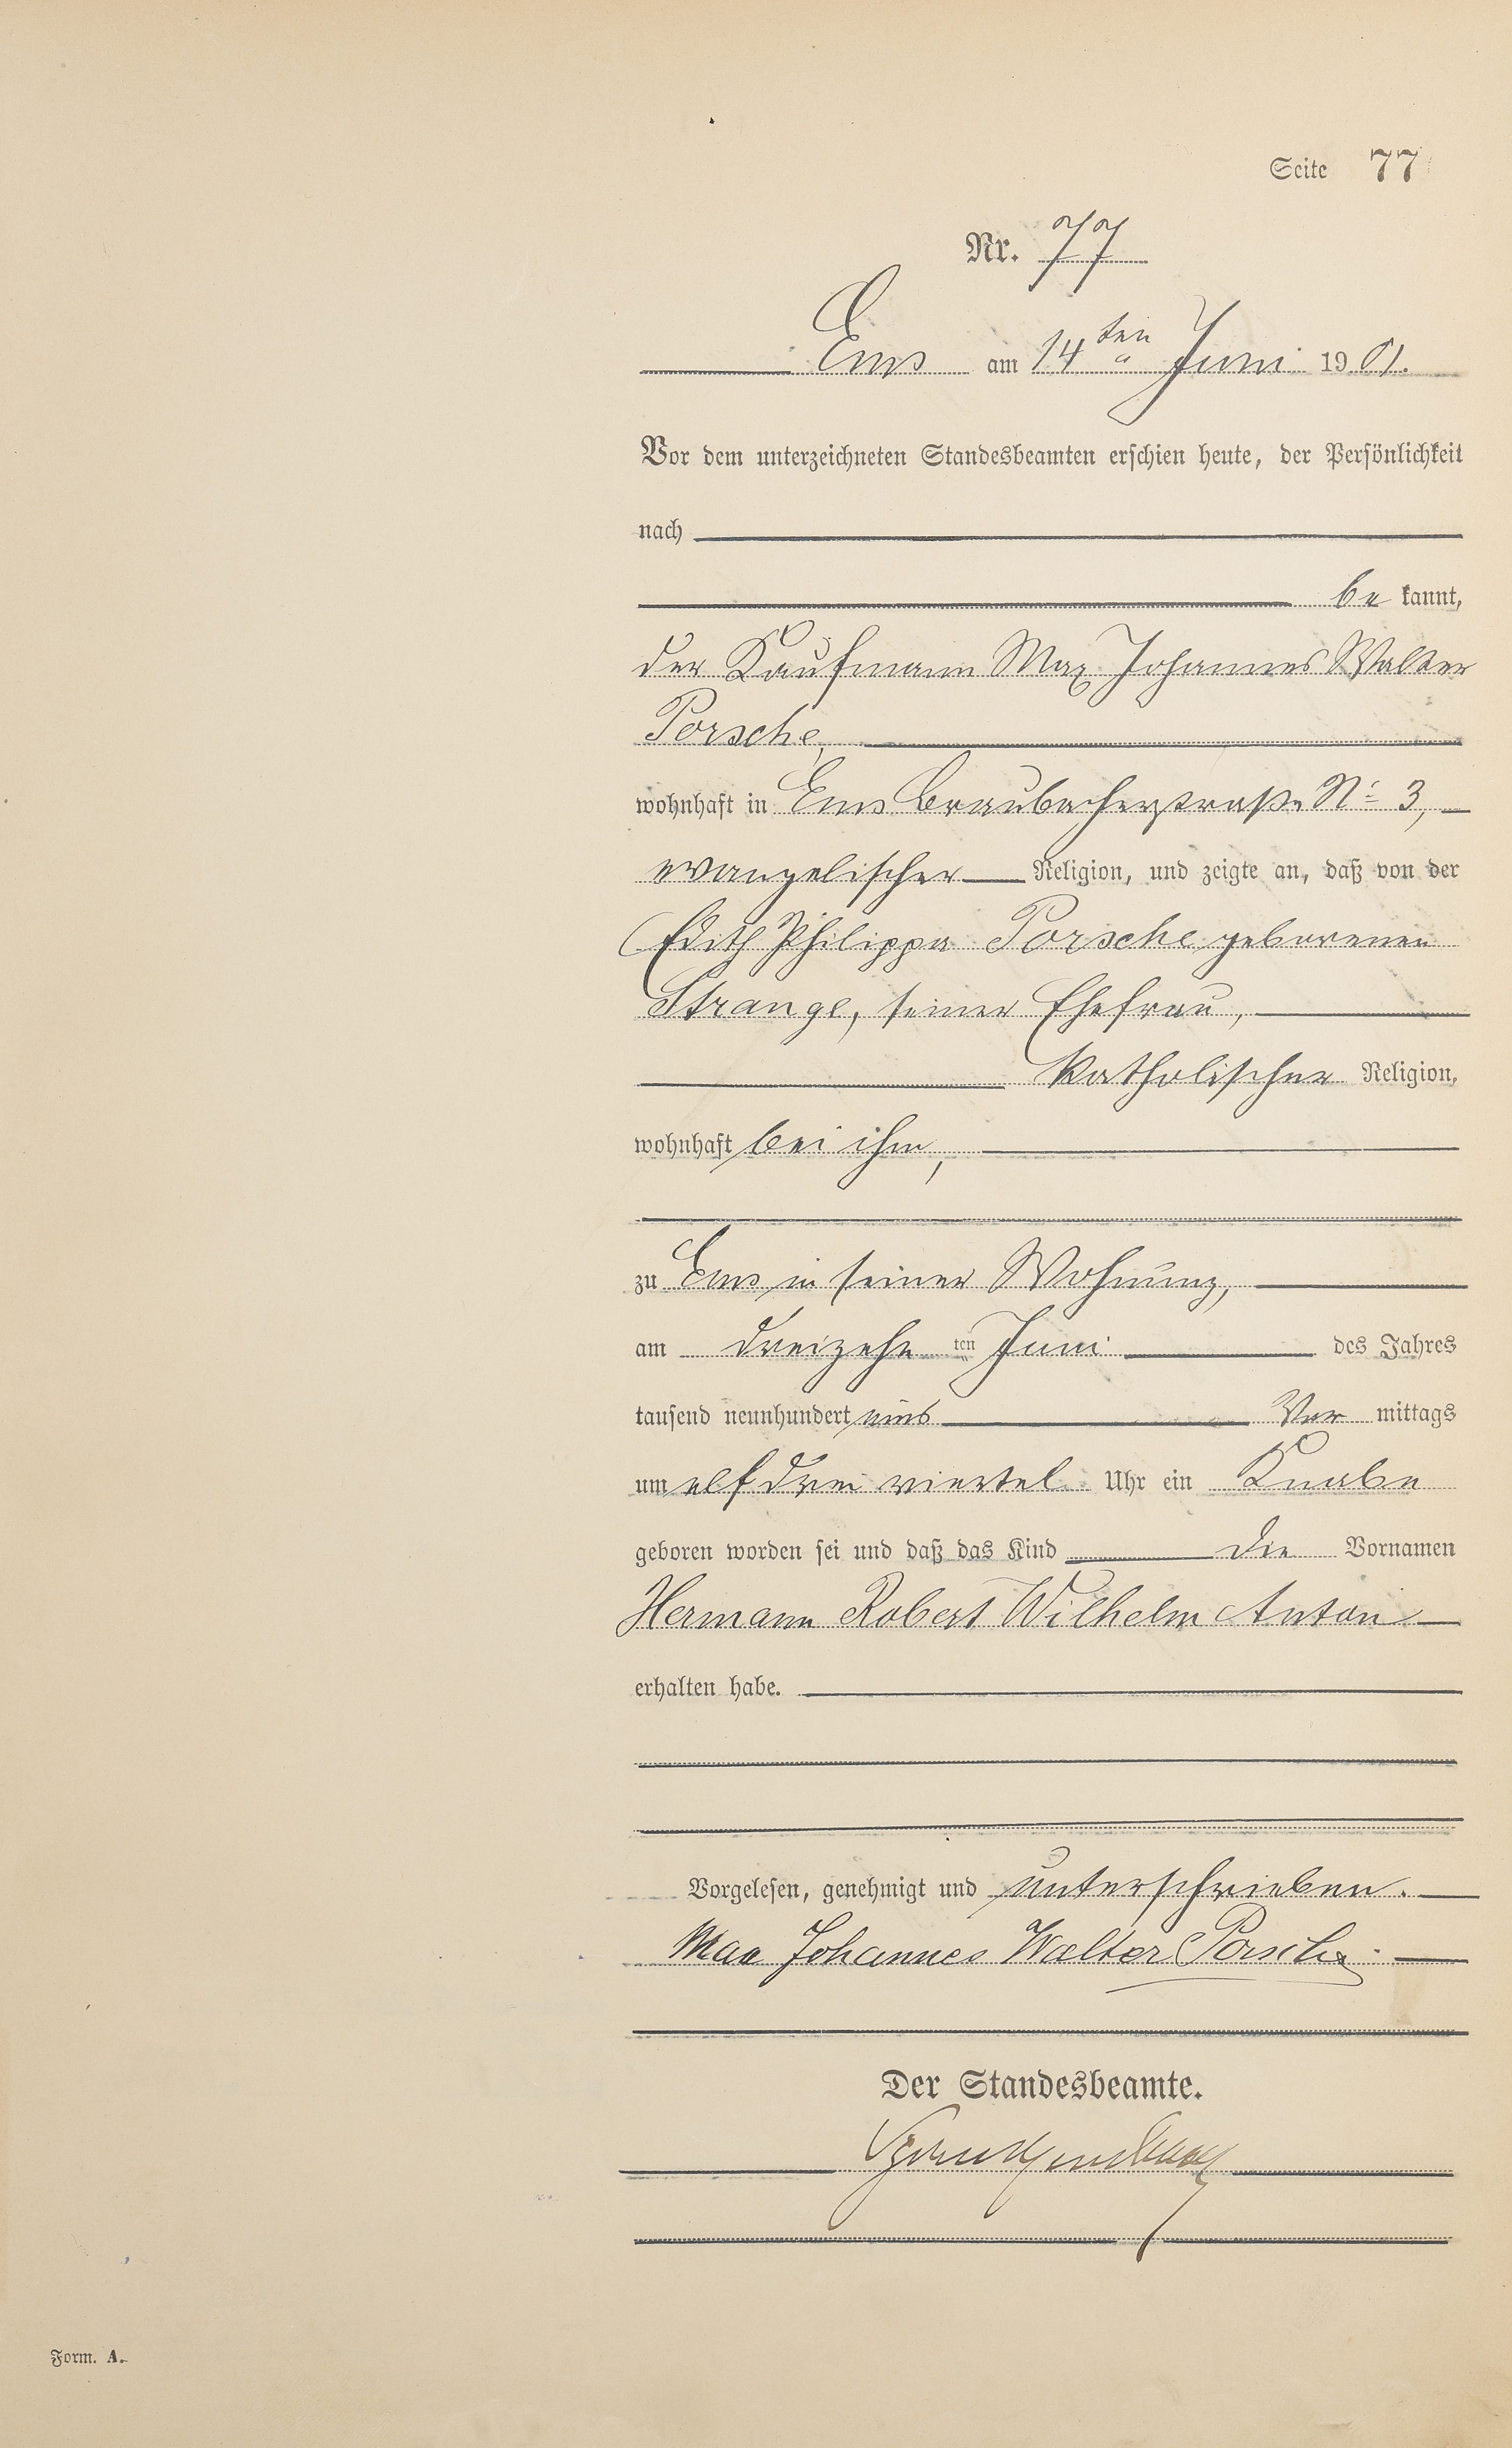 Seite 77
Nr. 77
Ems am 14ten Juni 1901.
Vor dem unterzeichneten Standesbeamten erschien heute, der Persönlichkeit
nach
be kannt,
der Kaufmann Max Johannes Walter
Porsche,
wohnhaft in Ems Braubacherstraße No 3,
evangelischer Religion, und zeigte an, daß von der
Edith Philippa Porsche geborenen
Strange, seiner Ehefrau,
katholischer Religion,
wohnhaft bei ihm,
zu Ems in seiner Wohnung,
am dreizehn ten Juni des Jahres
tausend neunhundert eins Vor mittags
um elf drei viertel Uhr ein Knabe
geboren worden sei und daß das Kind die Vornamen
Hermann Robert Wilhelm Anton
erhalten habe.
Vorgelesen, genehmigt und unterschrieben.
Max Johannes Walter Porsche.
Der Standesbeamte.
Form. A.